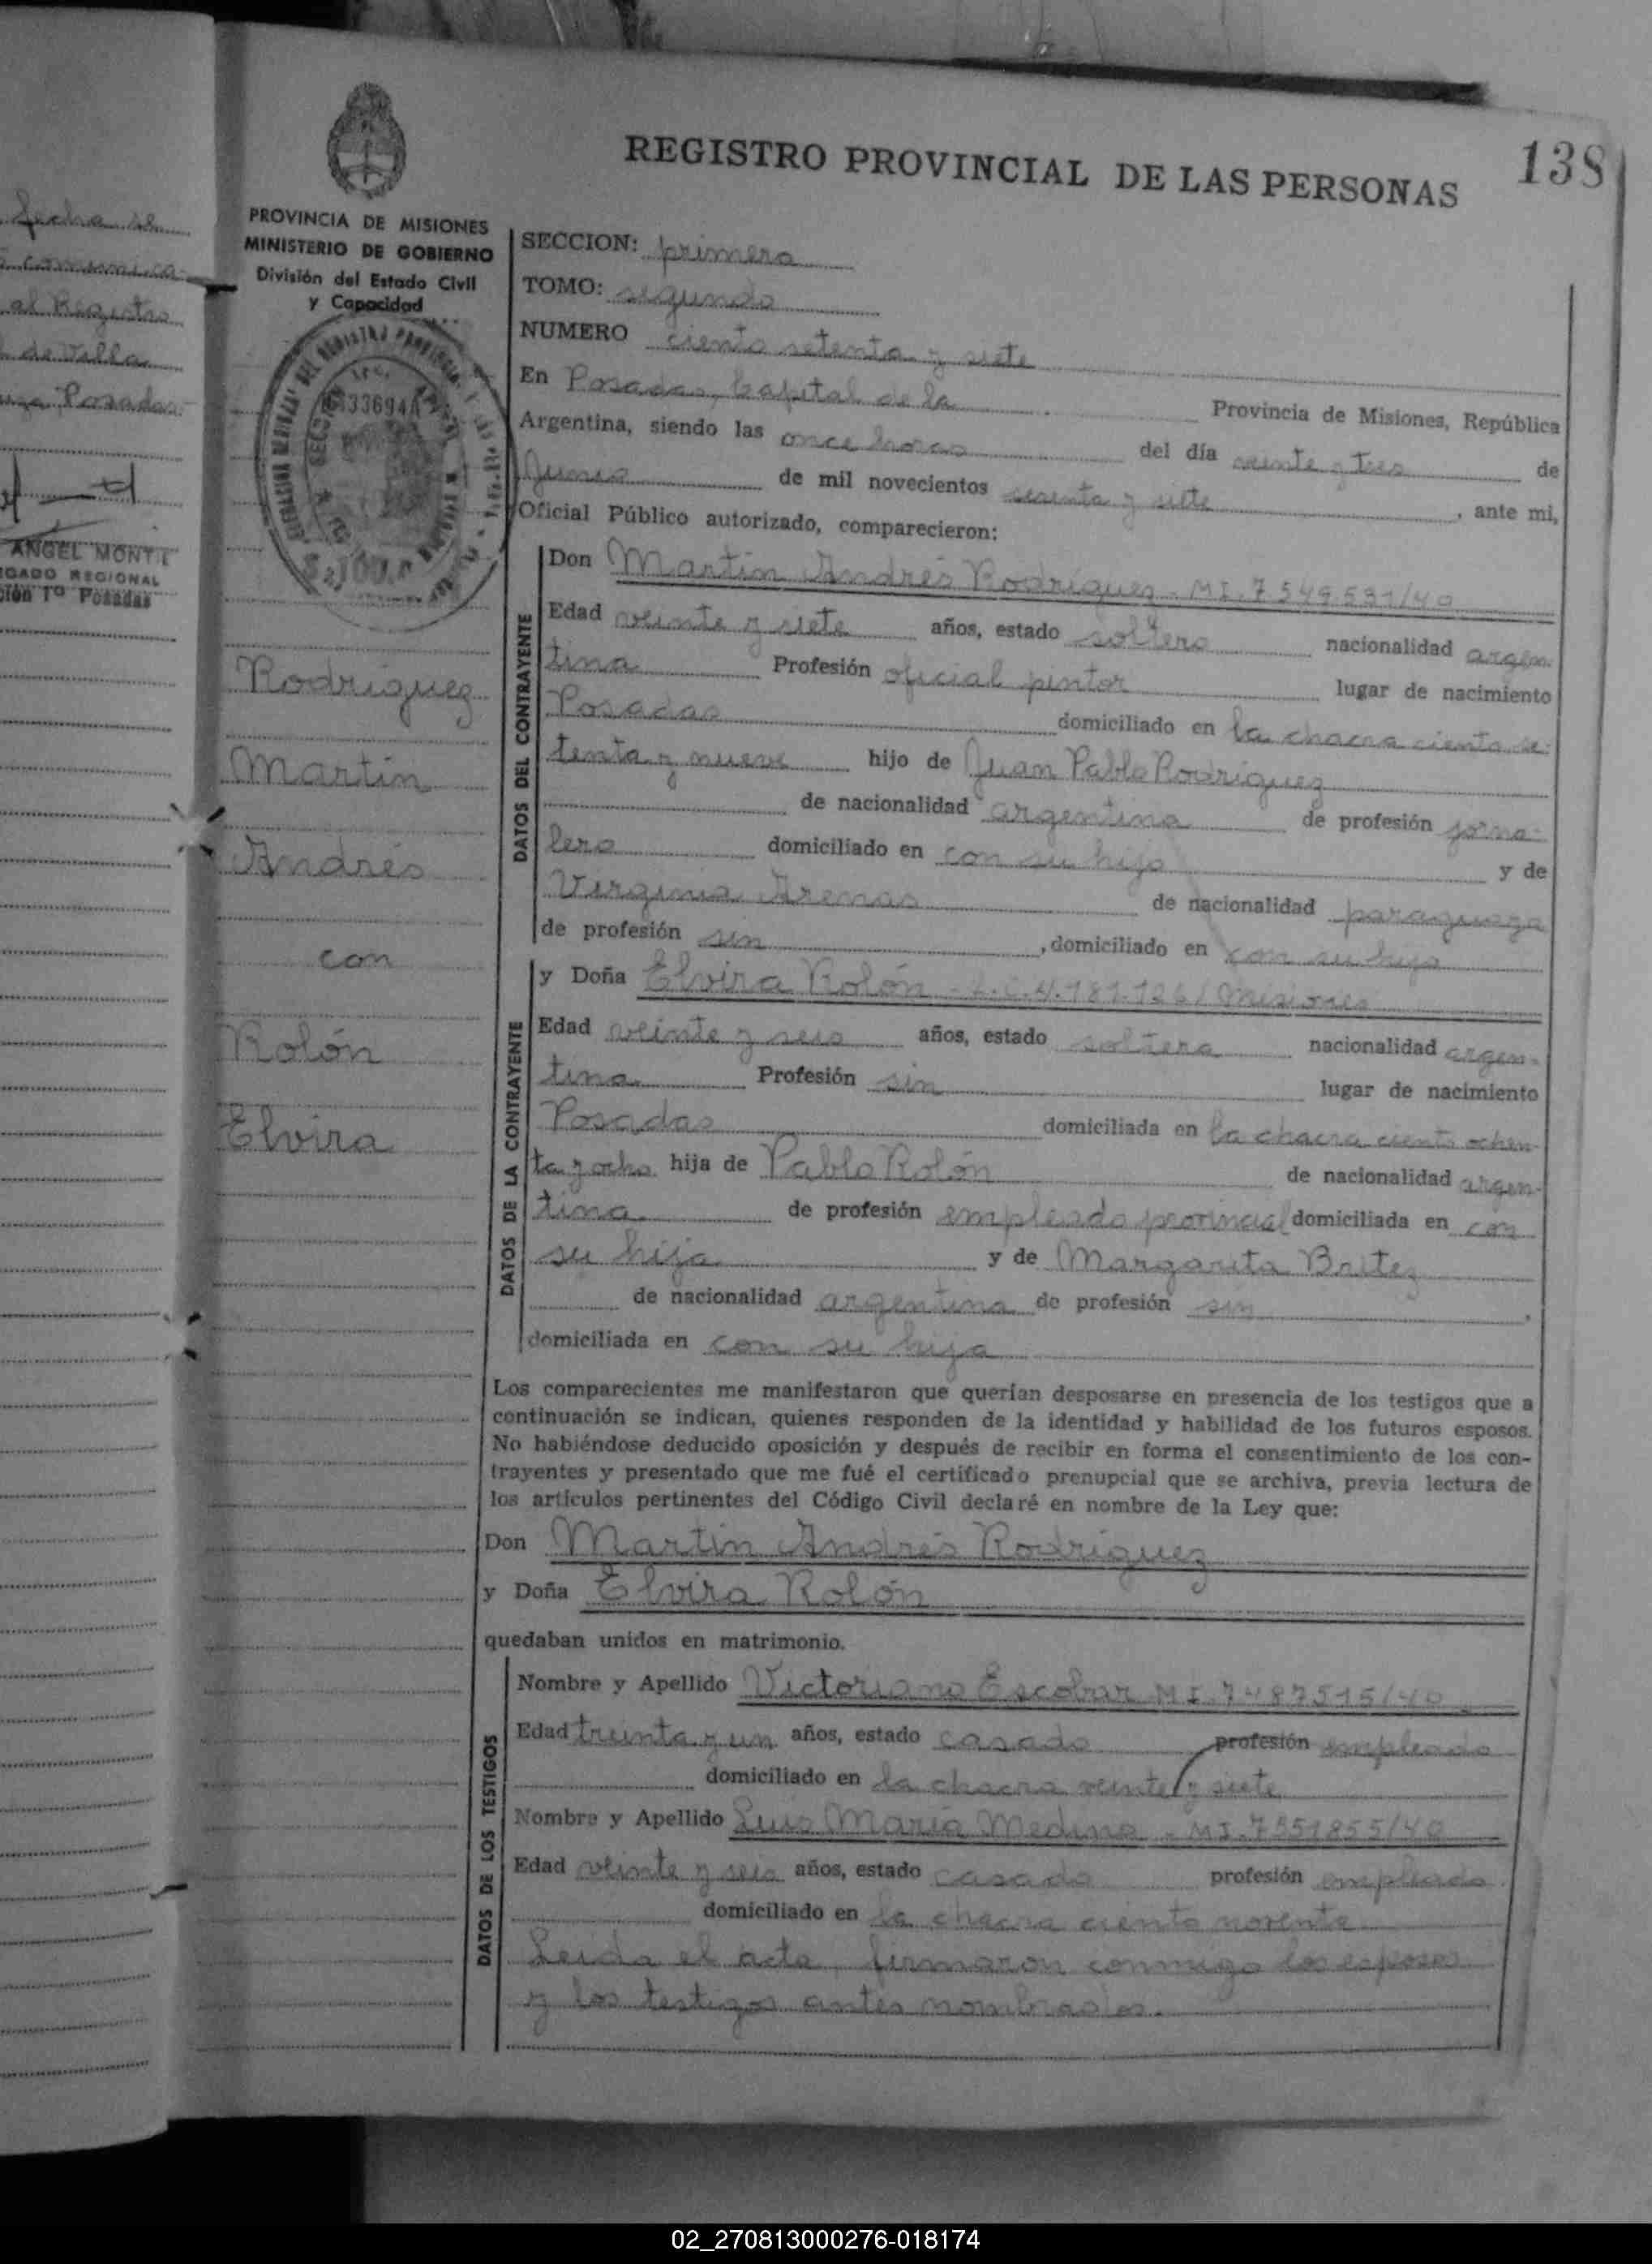 fecha se
comunica-
al Registro
de Villa
Posadas-
ANGEL MONTI
GADO REGIONAL
ción 1ª Posadas
PROVINCIA DE MISIONES
MINISTERIO DE GOBIERNO
División del Estado Civil
y Capacidad
33694
Rodriguez
Martin
Andrés
con
Rolón
Elvira
REGISTRO PROVINCIAL DE LAS PERSONAS
138
SECCION: primera
TOMO: segundo
NUMERO ciento setenta y siete
En Posadas, Capital de la Provincia de Misiones, República
Argentina, siendo las once horas del día veinte y tres de
Junio de mil novecientos sesenta y siete, ante mi,
Oficial Público autorizado, comparecieron:
DATOS DEL CONTRAYENTE
Don Martin Andrés Rodriguez - MI. 7.549.531/40
Edad veinte y siete años, estado soltero nacionalidad argen-
tina Profesión oficial pintor lugar de nacimiento
Posadas domiciliado en la chacra ciento se-
tenta y nueve hijo de Juan Pablo Rodriguez
de nacionalidad argentina de profesión jorna-
lero domiciliado en con su hijo y de
Virginia Arenas de nacionalidad paraguaya
de profesión sin, domiciliado en con su hijo
DATOS DE LA CONTRAYENTE
y Doña Elvira Rolón - L.C. 4.181.126/Misiones
Edad veinte y seis años, estado soltera nacionalidad argen-
tina Profesión sin lugar de nacimiento
Posadas domiciliada en la chacra ciento ochen-
ta y ocho hija de Pablo Rolón de nacionalidad argen-
tina de profesión empleado provincial domiciliada en con
su hija y de Margarita Britez
de nacionalidad argentina de profesión sin,
domiciliada en con su hija
Los comparecientes me manifestaron que querían desposarse en presencia de los testigos que a
continuación se indican, quienes responden de la identidad y habilidad de los futuros esposos.
No habiéndose deducido oposición y después de recibir en forma el consentimiento de los con-
trayentes y presentado que me fué el certificado prenupcial que se archiva, previa lectura de
los artículos pertinentes del Código Civil declaré en nombre de la Ley que:
Don Martin Andrés Rodriguez
y Doña Elvira Rolón
quedaban unidos en matrimonio.
DATOS DE LOS TESTIGOS
Nombre y Apellido Victoriano Escobar MI. 7487515/40
Edad treinta y un años, estado casado profesión empleado
domiciliado en la chacra veinte y siete
Nombre y Apellido Luis María Medina - MI. 7551855/40
Edad veinte y seis años, estado casado profesión empleado
domiciliado en la chacra ciento noventa
Leida el acta, firmaron conmigo los esposos
y los testigos antes nombrados.
02_270813000276-018174